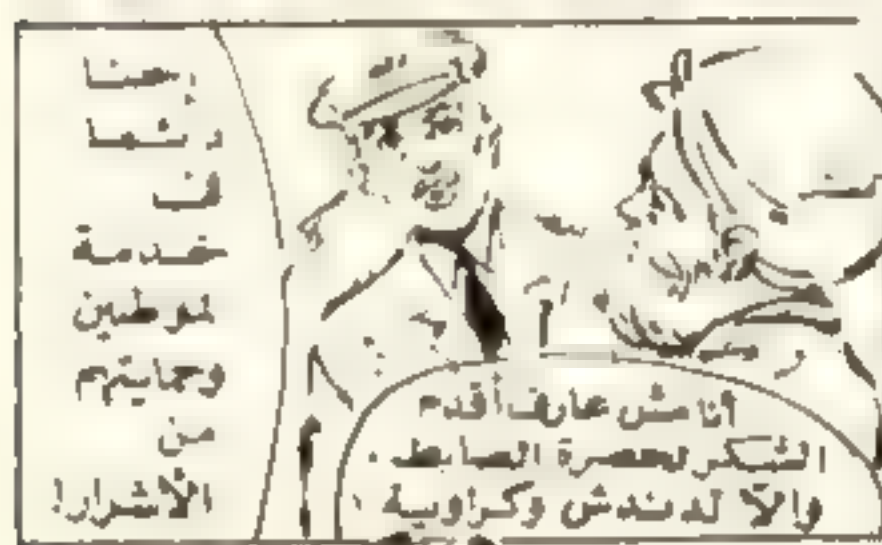 إحنا
دائما
فى
خدمة
لمواطنين
وحمايتهم
من
الأشرار!
أنا مش عارف أقدم
الشكر لحضرة الضابط
والا لدندش وكراوية